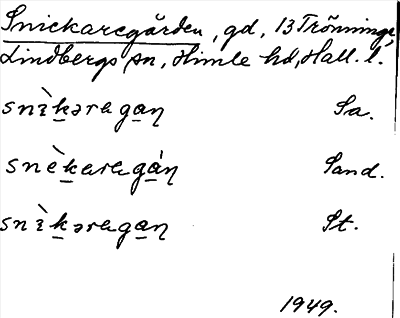 Snickaregården, gd, 13 Trönninge,
Lindbergs sn, Himle hd, Hall. l.
snìkəragaɳ Sa.
snèkaragáɳ Sand.
snìkəragaɳ St.
1949.